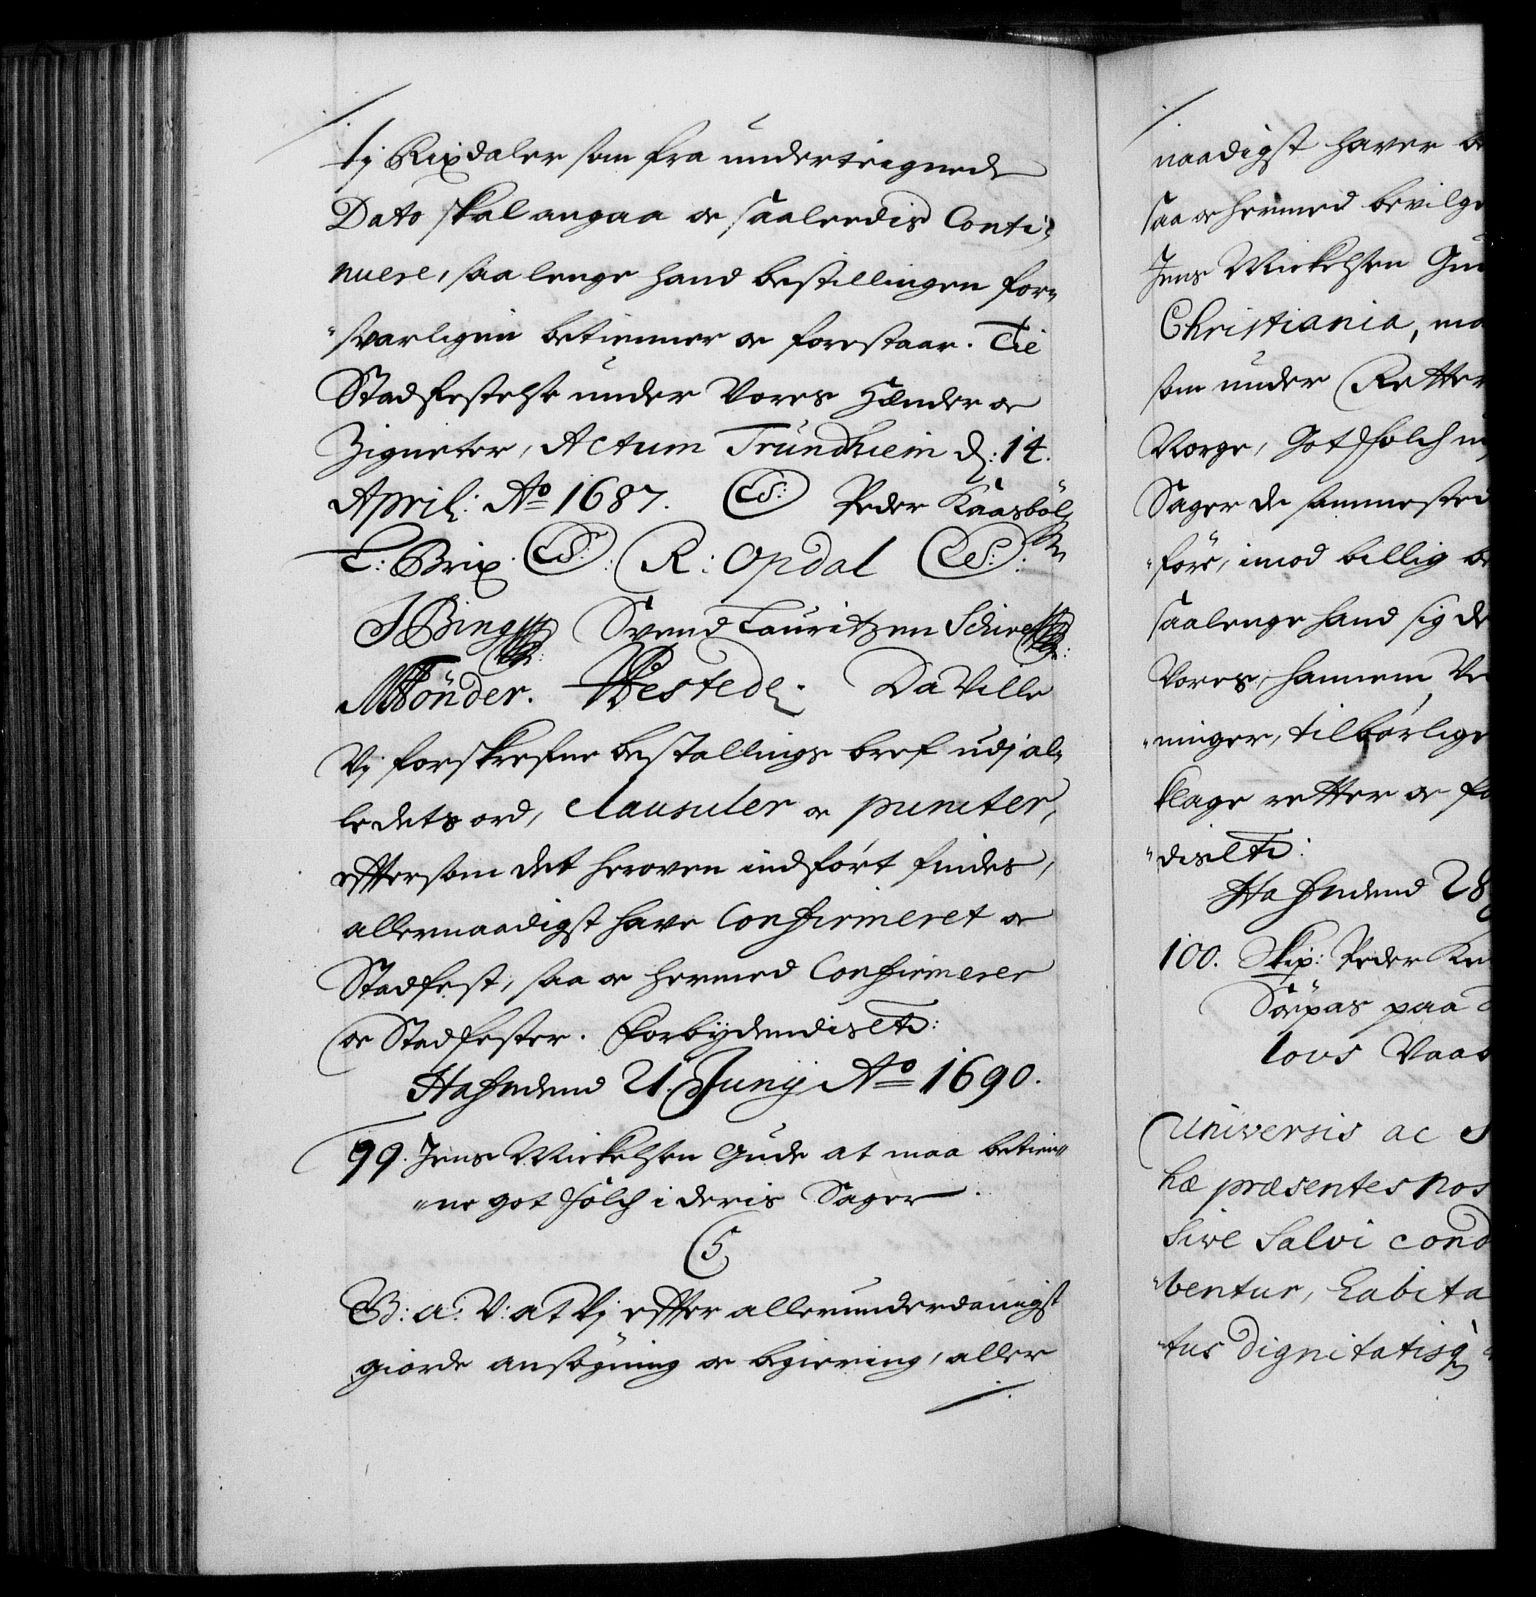 tj Rixdaler som fra underteignede
Dato skal angaa oc saaleedis Conti-
nuere, saa lenge hand bestillingen for-
svarligen betienner oc forestaar. Til
Stadfestelse under Vores Hænder oc
Zigneter, Actum Trundhiem d: 14.
April: Ao 1687. (LS:) Peder Kaasböl
L: Brix. (LS): R: Opdal (LS):
J Bing Svend Lauritzen Schive
MTönder. PWestede. DaVille
Vj forskrefne bestallings bref udj al-
le dets ord, clausuler oc puncter,
eftersom det heroven indfört findes,
allernaadigst have Confirmeret oc
Stadfest, saa oc hermed Confirmerer
oc Stadfester. Forbydendis etc:
Hafn 21. Junij Ao 1690.
99. Jens Mickelsen Gude at maa betien-
ne got folch i deris Sager.
C5
G: a: V: at Vj efter allerunderdanigst
giorde ansögning oc begiering, aller
naadigst haver be
saa oc hermed bevilge
Jens Mickelsen Gu
Christiania, ma
som under Retter
Norge, Got folch u
Sager de sammested
före, imod billig be
saalenge hand sig de
Vores, hannem Ve
ninger, tilbörlige
klage retter oc fo
dis etc:
Hafn 28
100. Skip: Peder
paa
lovs Vaas
Universis ac S
hæ præsentes nos
sive Salvi cond
bentur, habita
tus dignitatisq